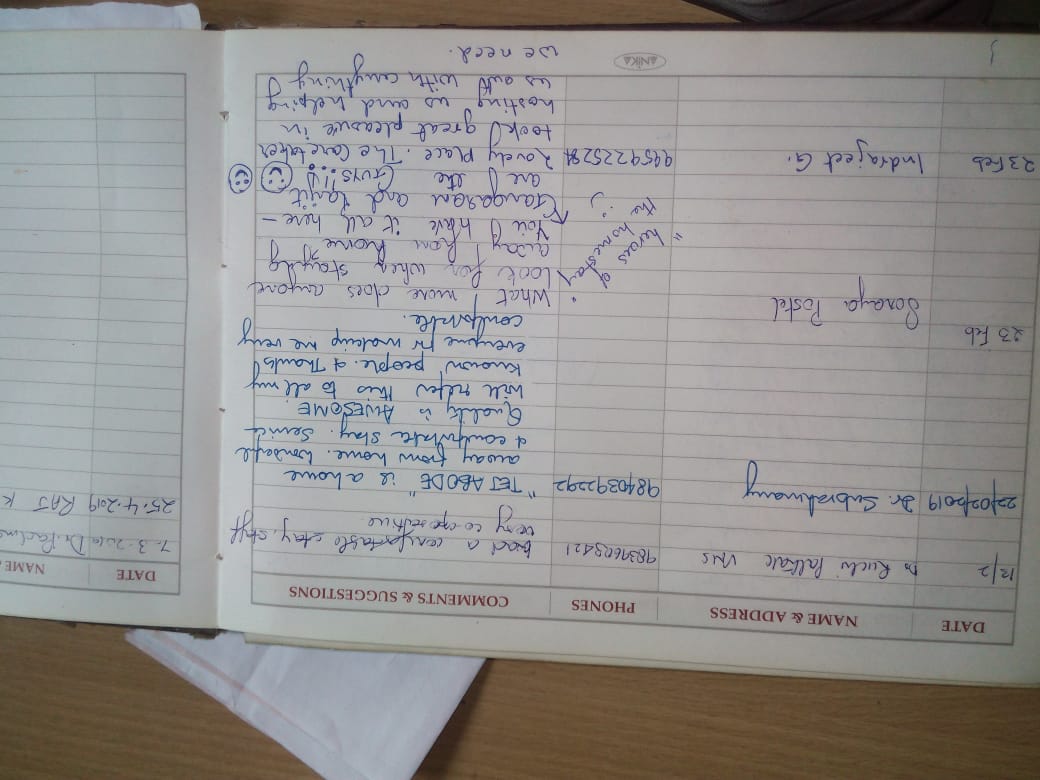 DATE
NAME & ADDRESS
PHONES
COMMENTS & SUGGESTIONS
12/2
Dr Ruchi VNS
9839603421
Had a comfortable stay. Staff
very co-operative
22/02/2019
Dr. Subrahmany
9840392292
"TET ABODE" is a home
away from home. Wonderful
& comfortable stay. Service
Quality is AWESOME
will refer this to all my
known people. & Thanks
everyone for making me very
comfortable.
23 Feb
Soraya Postel
What more does anyone
look for when staying
away from home
You have it all here –
Gangaram and Ranjit
are the GUYS!!!
" heroes of
homestay
the
23 Feb
Indrajeet G.
Lovely place. The Caretaker
took great pleasure in
hosting us and helping
us out with anything
we need.
ANIKA
DATE
NAME &
7.3.2019 Dr.
25.4.2019 RAJ K